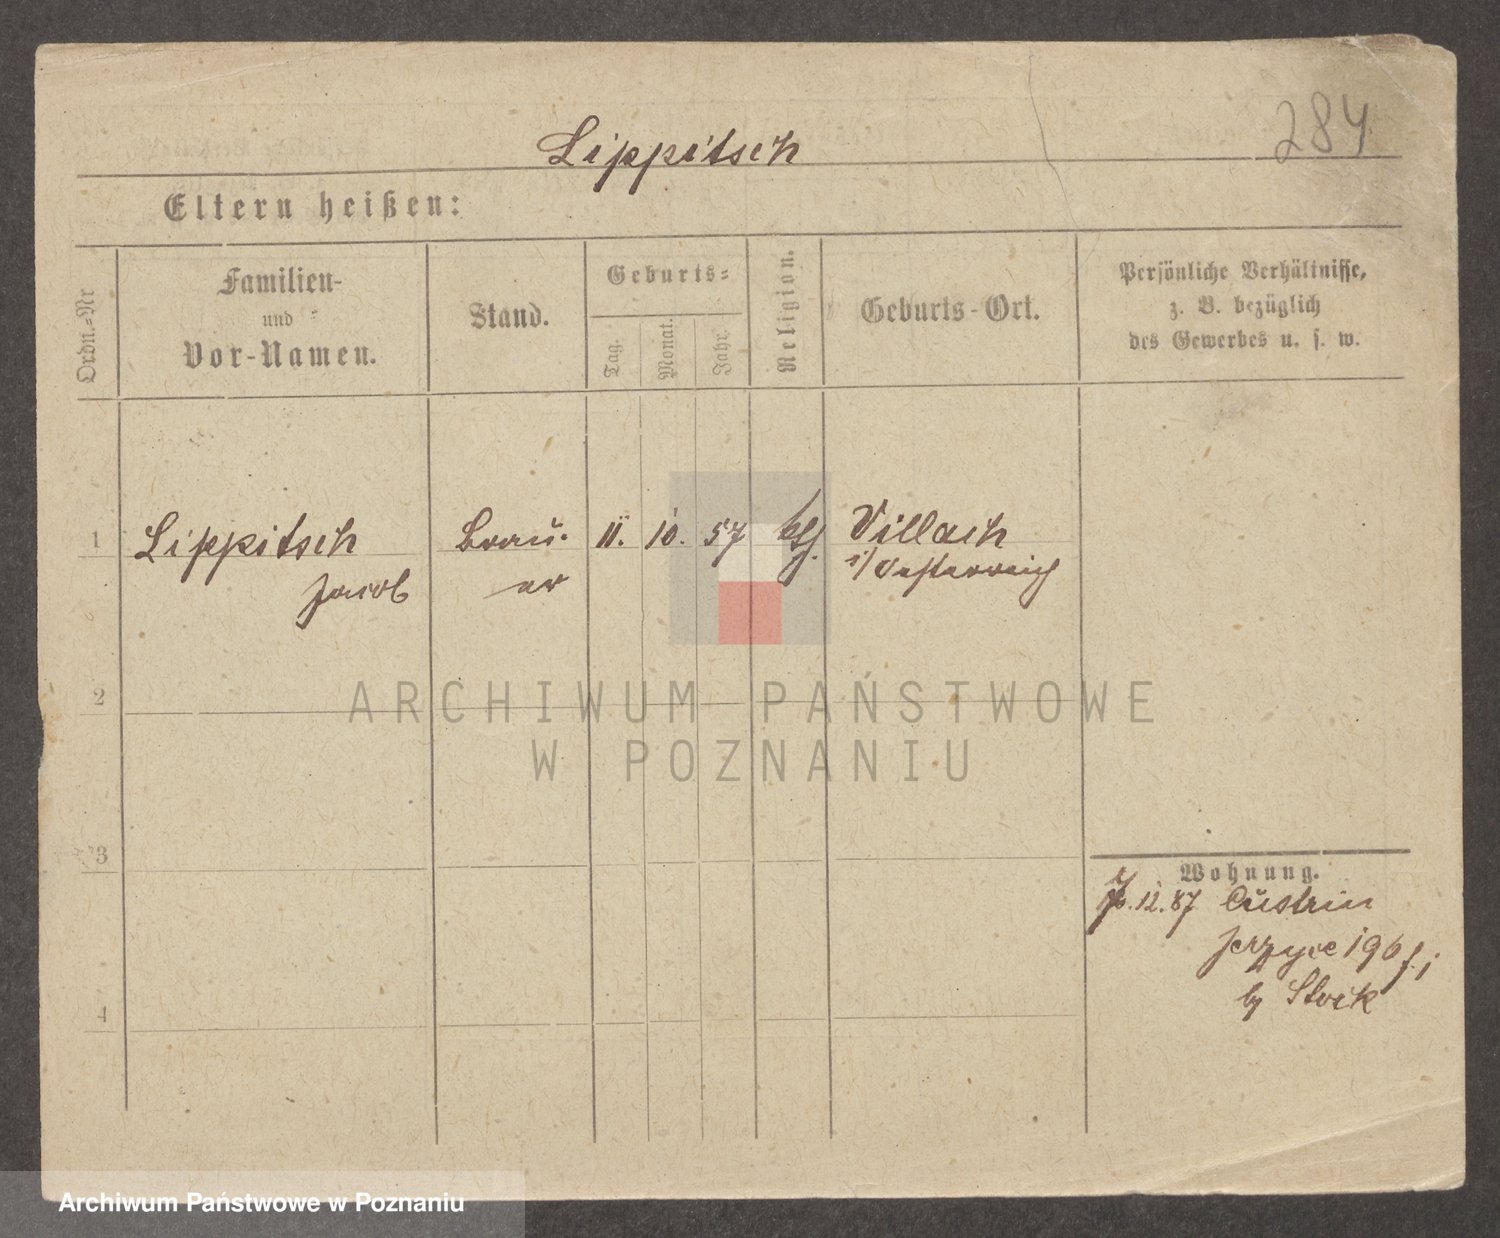 284
Lippitsch
Eltern heißen:
Ordn.-Nr
Familien-
und
Vor-Namen.
Stand.
Geburts-
Tag.
Monat.
Jahr.
Religion.
Geburts-Ort.
Persönliche Verhältnisse,
z. B. bezüglich
des Gewerbes u. s. w.
1 Lippitsch Brau- 11. 10. 57 Villach
Jacob er i/Oesterreich
2
ARCHIWUM PAŃSTWOWE
W POZNANIU
3
Wohnung.
12. 87 Cüstrin
Jerzyce 196
by Stock
4
Archiwum Państwowe w Poznaniu